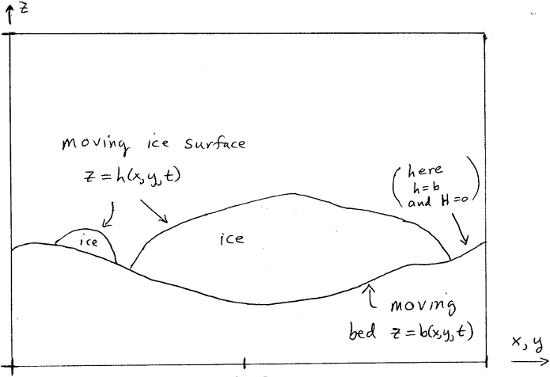 z
moving ice surface
z = h(x,y,t)
(here
h=b
and H=0)
ice
ice
moving
bed z = b(x,y,t)
x, y